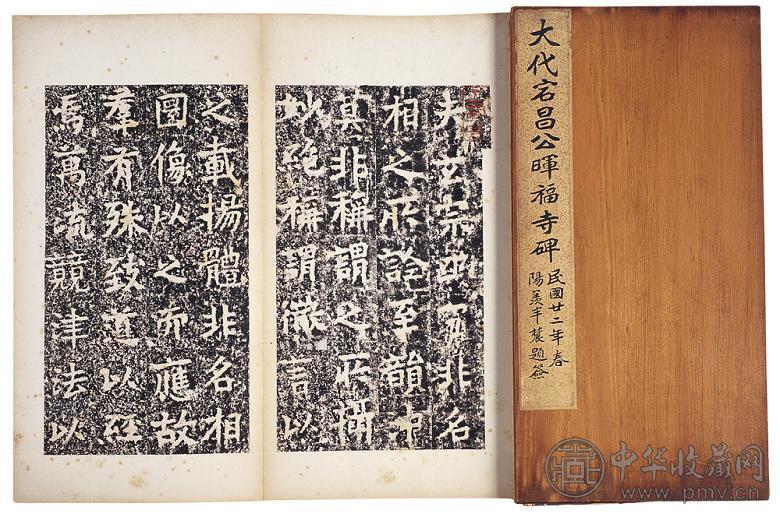 大代宕昌公暉福寺碑
民國廿二年春
陽羨半農題簽
夫玄宗幽寂非名
相之所詮至韻沖
莫非稱謂之所攝
妙絕稱謂微言以
之載揚體非名相
圖像以之而應故
羣有殊致道以經
焉萬流競津法以
中华收藏网
www.pmv.cn